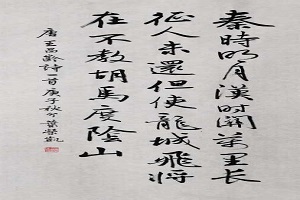 秦時明月漢时関萬里長
征人未還但使龍城飛將
在不教胡馬度陰山
唐王昌齡詩一首庚子秋